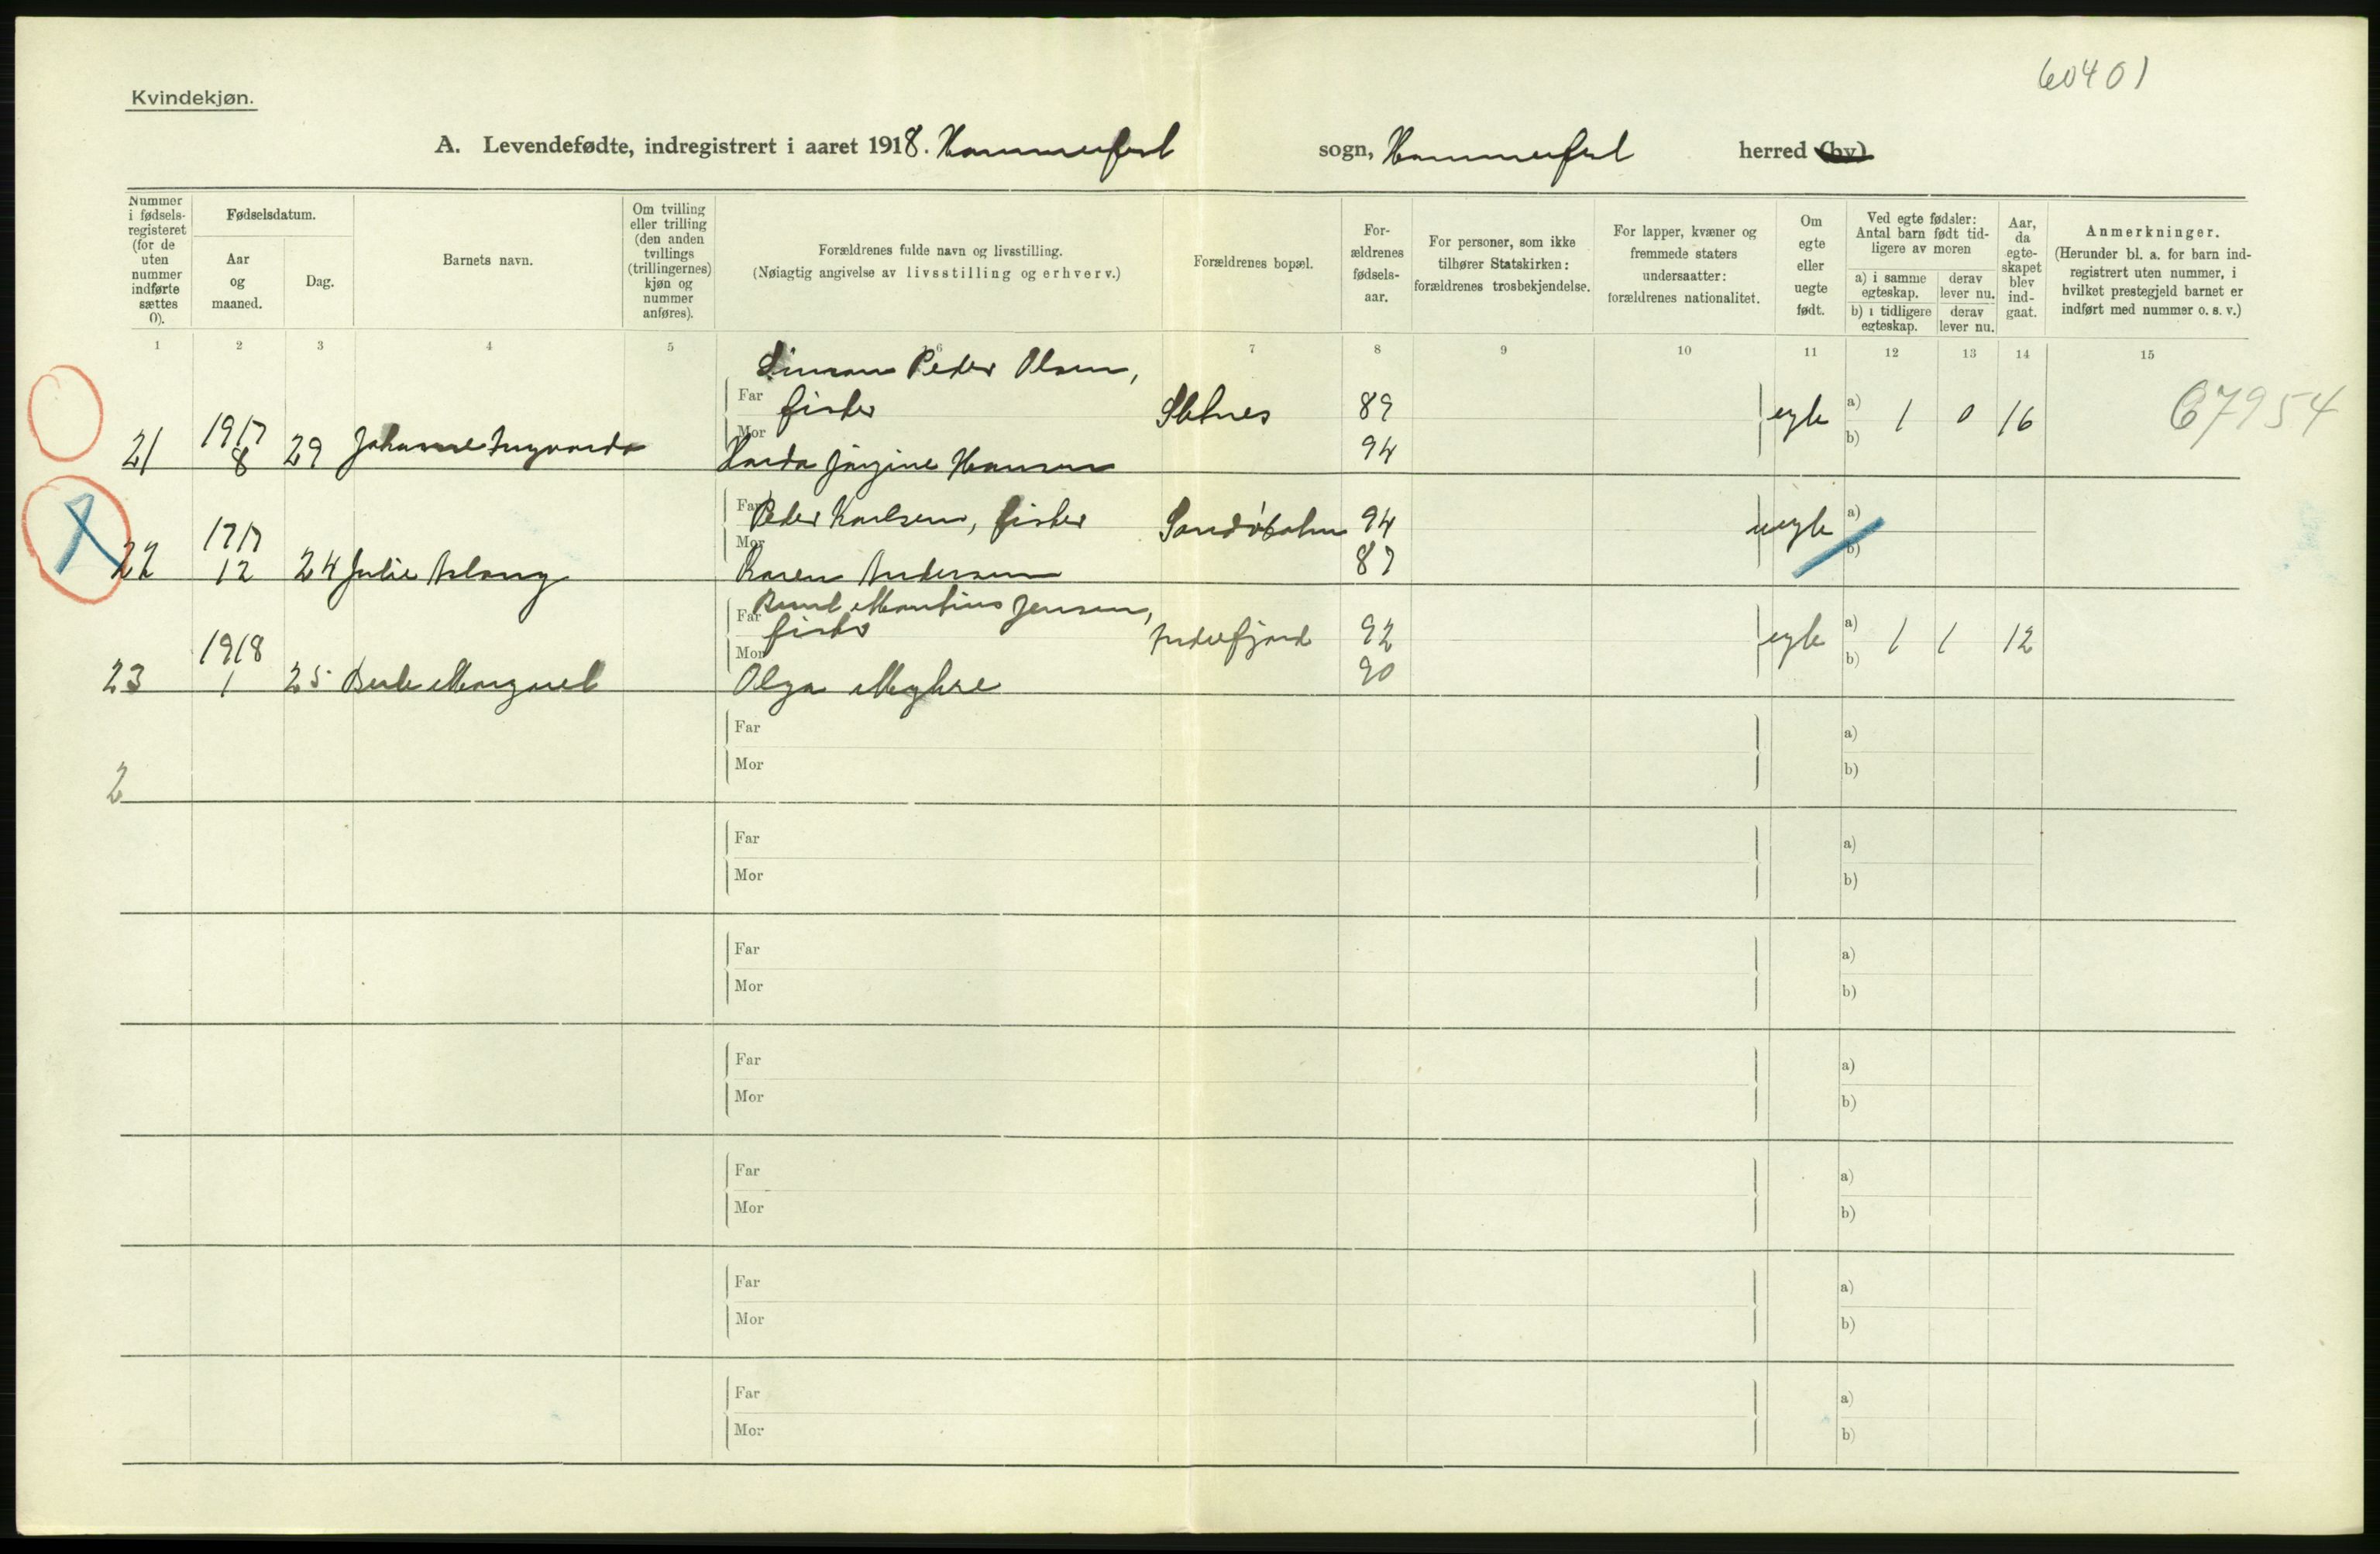 60401
Kvindekjøn.
A. Levendefødte, indregistrert i aaret 1918. Hammerfest sogn, Hammerfest herred (by)
Nummer i fødsels-registeret (for de uten nummer indførte sættes 0).
Fødselsdatum.
Aar og maaned.
Dag.
Barnets navn.
Om tvilling eller trilling (den anden tvillings (trillingernes) kjøn og nummer anføres).
Forældrenes fulde navn og livsstilling.
(Nøiagtig angivelse av livsstilling og erhverv.)
Forældrenes bopæl.
For-ældrenes fødsels-aar.
For personer, som ikke tilhører Statskirken: forældrenes trosbekjendelse.
For lapper, kvæner og fremmede staters undersaatter: forældrenes nationalitet.
Om egte eller uegte født.
Ved egte fødsler: Antal barn født tid-ligere av moren
a) i samme egteskap.
derav lever nu.
b) i tidligere egteskap.
derav lever nu.
Aar, da egte-skapet blev ind-gaat.
Anmerkninger.
(Herunder bl. a. for barn ind-registrert uten nummer, i hvilket prestegjeld barnet er indført med nummer o. s. v.)
1 2 3 4 5 6 7 8 9 10 11 12 13 14 15
Simon Peder Olsen,
Far fisker Sletnes 89 egte a) 1 0 16 67954
21 1917 8 29 Johanne Ingvarda
Mor Harda Jørgine Hansen 94 b)
Far Peder Karlsen, fisker 94 uegte a)
22 1917 12 24 Julie Aslaug
Mor Karen Andersen 87 b)
Martinus Jensen,
Far fisker Indrefjord 92 egte a) 1 1 12
23 1918 1 25 Margaret
Mor Olga 90 b)
Far a)
2 Mor b)
Far a)
Mor b)
Far a)
Mor b)
Far a)
Mor b)
Far a)
Mor b)
Far a)
Mor b)
Far a)
Mor b)